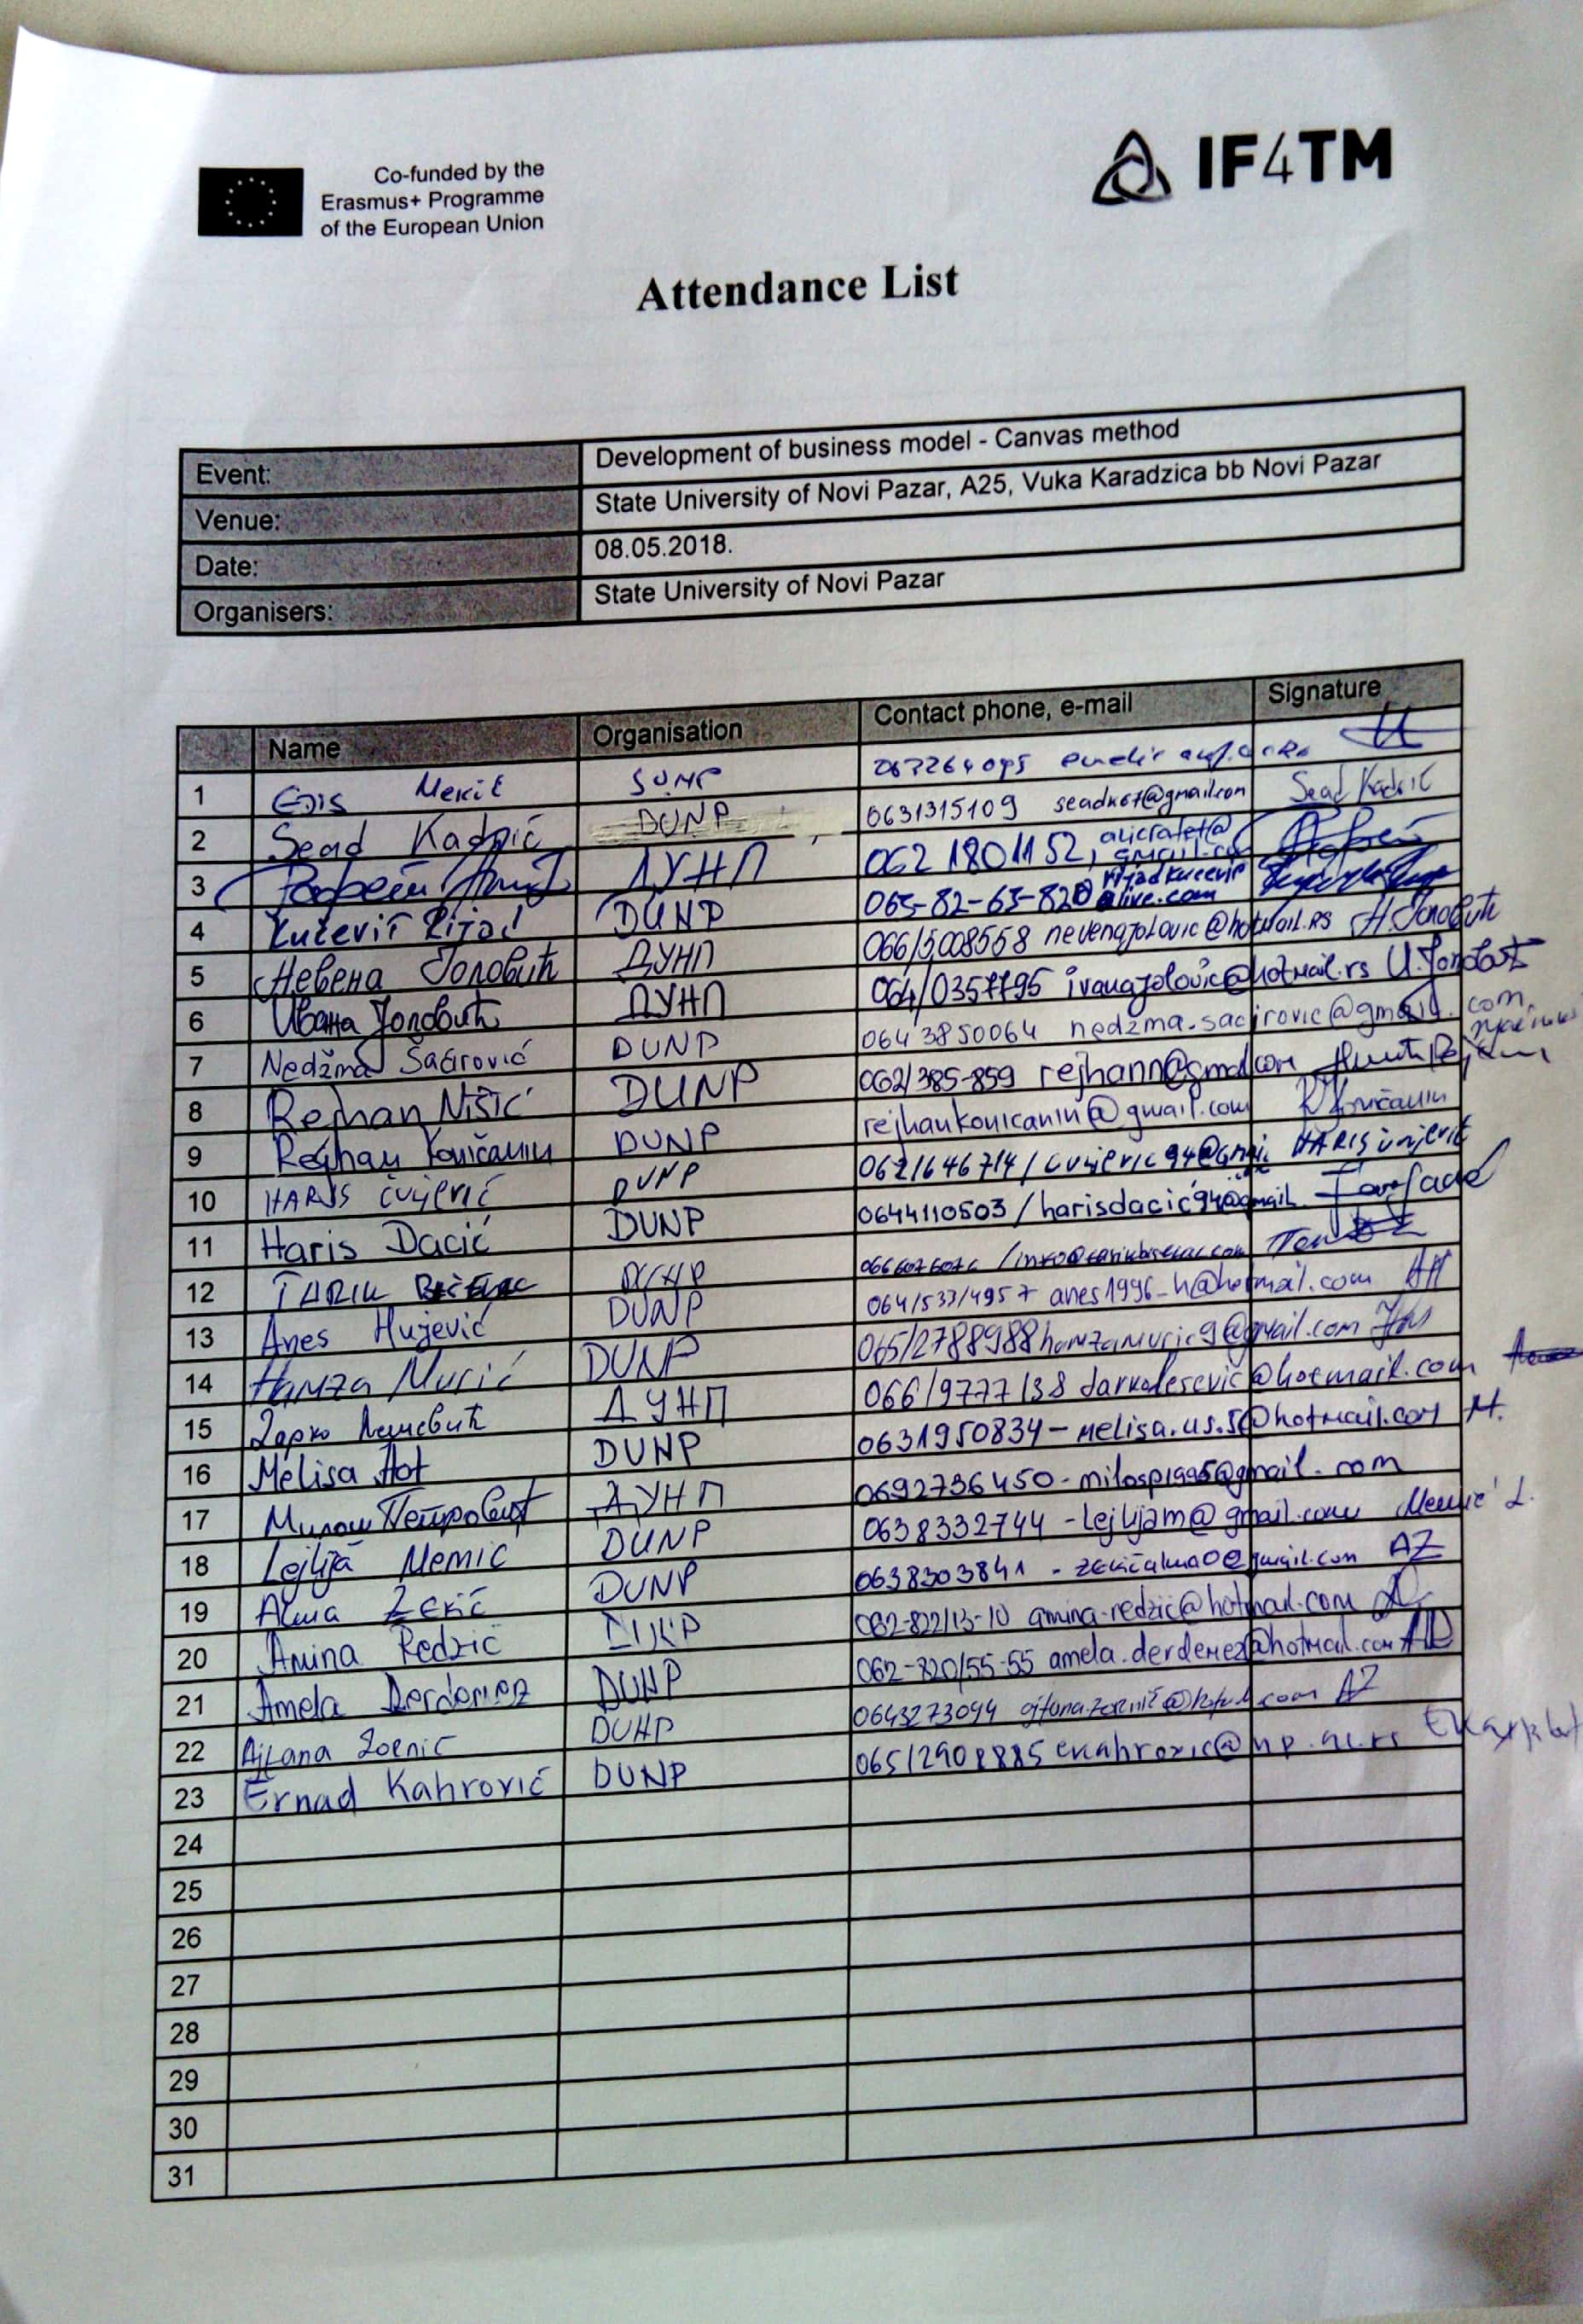 Co-funded by the
Erasmus+ Programme
of the European Union
IF4TM
Attendance List
Event: Development of business model - Canvas method
Venue: State University of Novi Pazar, A25, Vuka Karadzica bb Novi Pazar
Date: 08.05.2018.
Organisers: State University of Novi Pazar
Name Organisation Contact phone, e-mail Signature
1 Edis Mekić SUNP
2 Sead Kadrić DUNP 0631315109 Sead Kadrić
3 ДУНП 062 1801152,
4 Kučević Rijad DUNP 065-82-65-820 rijadkucevic @live.com
5 Невена Јоловић ДУНП 066/5008558 nevenajolovic@hotmail.rs Н.Јоловић
6 Ивана Јоловић ДУНП 064/0357795 ivanajolovic@hotmail.rs И.Јоловић
7 Nedžma Šaćirović DUNP 064 3850064 nedzma.sacirovic@gmail.com
8 Rejhan Nišić DUNP 062/385-859
9 Rejhan Koničanin DUNP rejhankonicanin@gmail.com R Koničanin
10 HARIS Čuljević DUNP 062/646714/ HARIS
11 Haris Dacić DUNP 0644110503/harisdacic94@gmail.
12 TARIK DUNP
13 Anes Hujević DUNP 064/533/4957 anes1996_h@hotmail.com AH
14 Hamza Murić DUNP 065/2788988 hamzamuric9@gmail.com
15 Дарко Лешевић ДУНП 066/9777138 darkolesevic@hotmail.com
16 Melisa Hot DUNP 0631950834- melisa.us.5@hotmail.com M.
17 Милош Петровић ДУНП 0692736450- milosp1995@gmail.com
18 Lejlija Memić DUNP 0638332744 -lejlijam@gmail.com Memić L.
19 Alma Zekić DUNP 0638303841 - zekicalma0@gmail.com AZ
20 Amina Redzić DUNP 062-822/13-10 amina-redzic@hotmail.com
21 Amela Derdemez DUNP 062-820/55-55 amela.derdemez@hotmail.com AD
22 Ajlana Zornić DUNP 0643273094 AZ
23 Ernad Kahrović DUNP 065/2908885 ekahrovic@np.ac.rs
24
25
26
27
28
29
30
31